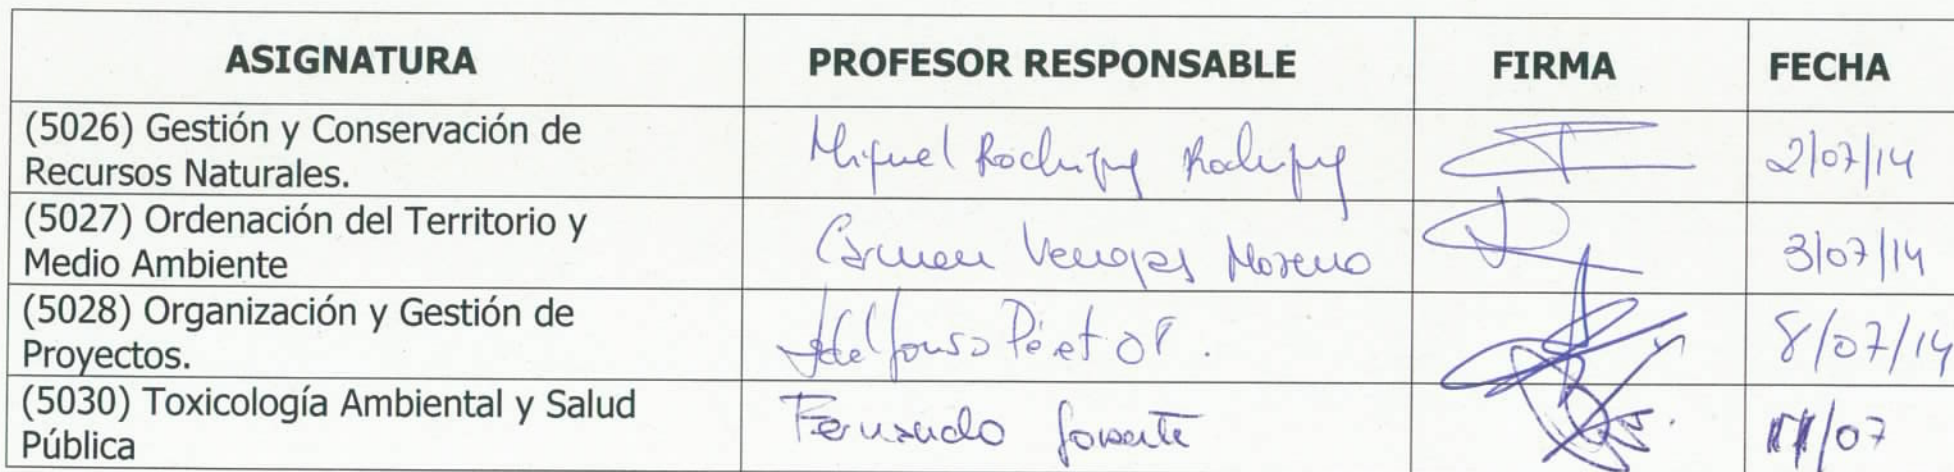 ASIGNATURA PROFESOR RESPONSABLE FIRMA FECHA
(5026) Gestión y Conservación de
Recursos Naturales.
Miguel Rodríguez Rodríguez 2/07/14
(5027) Ordenación del Territorio y
Medio Ambiente
Carmen Venegas Moreno 3/07/14
(5028) Organización y Gestión de
Proyectos.
Ildefonso 8/07/14
(5030) Toxicología Ambiental y Salud
Pública
Fernando /07